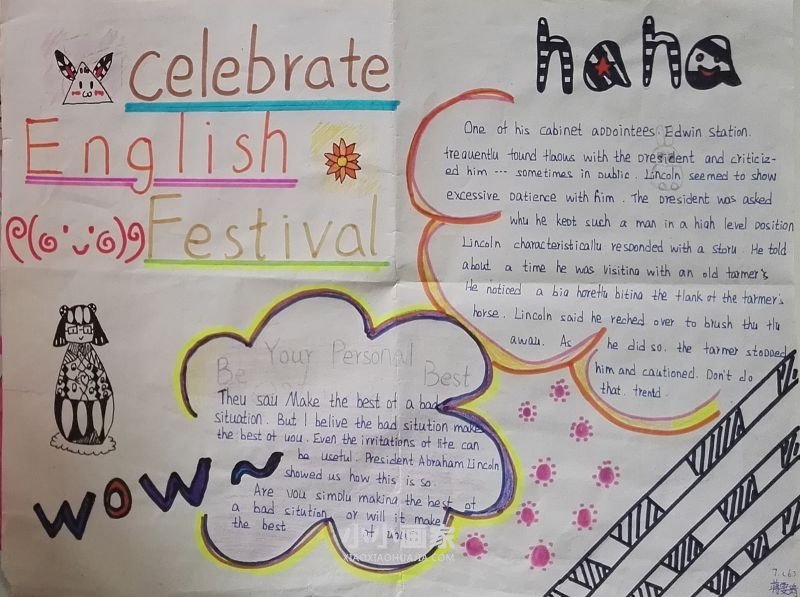 celebrate
English
Festival
haha
One of his cabinet appointees Edwin station.
frequently found flaous with the president and criticiz-
ed him ··· sometimes in public. Lincoln seemed to show
excessive patience with him. The president was asked
why he kept such a man in a high level position
Lincoln characteristically responded with a story. He told
about a time he was visiting with an old farmer's
He noticed a big horefly biting the flank of the farmer's
horse. Lincoln said he reched over to brush thu flu
away. As he did so. the farmer stopped
him and cautioned. Don't do
that. frentd.
Your Personal
Be Best
They say Make the best of a bad
situation. But I belive the bad sitution make
the best of you. Even the irritations of life can
be useful. President Abraham Lincoln
showed us how this is so.
Are you simply making the best of
a bad sitution, or will it make
the best of you
wow~
小小画家
XIAOXIAOHUAJIA.COM